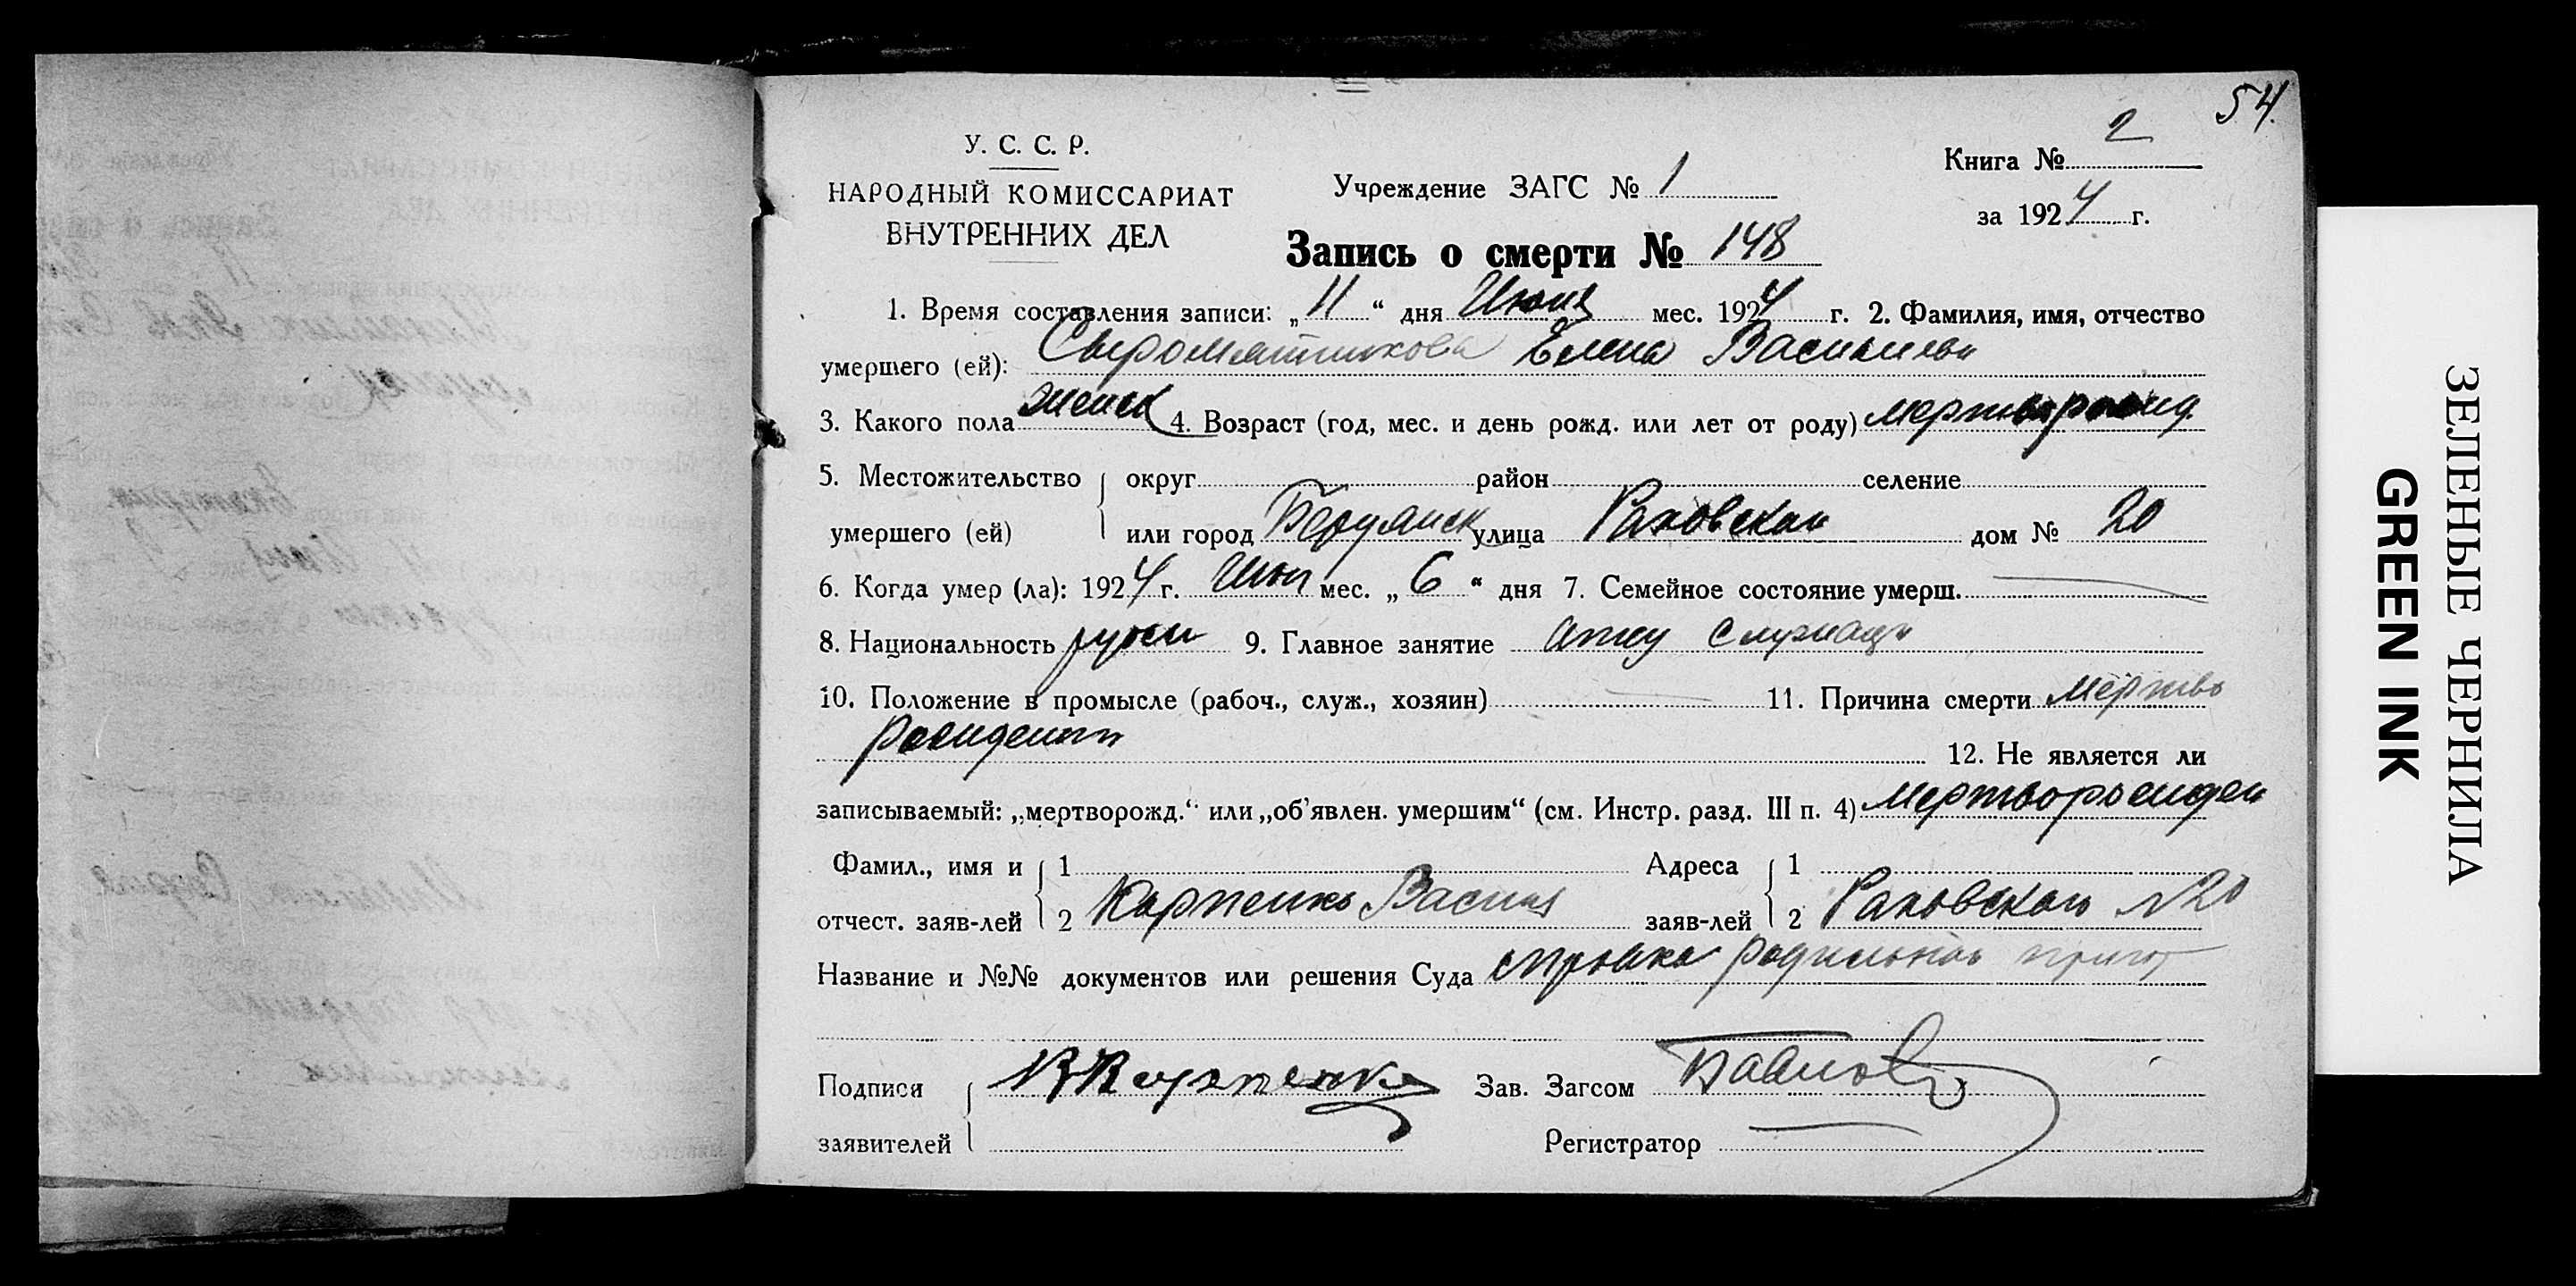 54.
У. С. С. Р.
НАРОДНЫЙ КОМИССАРИАТ
ВНУТРЕННИХ ДЕЛ
Учреждение ЗАГС № 1
Книга № 2
за 1924 г.
Запись о смерти № 148
1. Время составления записи: „11“ дня Июня мес. 1924 г. 2. Фамилия, имя, отчество
умершего (ей): Сыромятникова Елена Васильевн
3. Какого пола женск 4. Возраст (год, мес. и день рожд. или лет от роду) мертворожд.
5. Местожительство округ район селение
умершего (ей) или город Бердянск улица Раковская дом № 20
6. Когда умер (ла): 1924 г. Июн мес. „6“ дня 7. Семейное состояние умерш.
8. Национальность русск 9. Главное занятие служащ
10. Положение в промысле (рабоч., служ., хозяин) 11. Причина смерти Мертво
рожден
12. Не является ли
записываемый: „мертворожд.“ или „об'явлен. умершим“ (см. Инстр. разд. III п. 4) Мертворожден
Фамил., имя и 1 Адреса 1
отчест. заяв-лей 2 Карпенко Васил заяв-лей 2 Раковская №20
Название и №№ документов или решения Суда справка родильного приют
Подписи В Карпенко Зав. Загсом
заявителей Регистратор
ЗЕЛЕНЫЕ ЧЕРНИЛА
GREEN INK